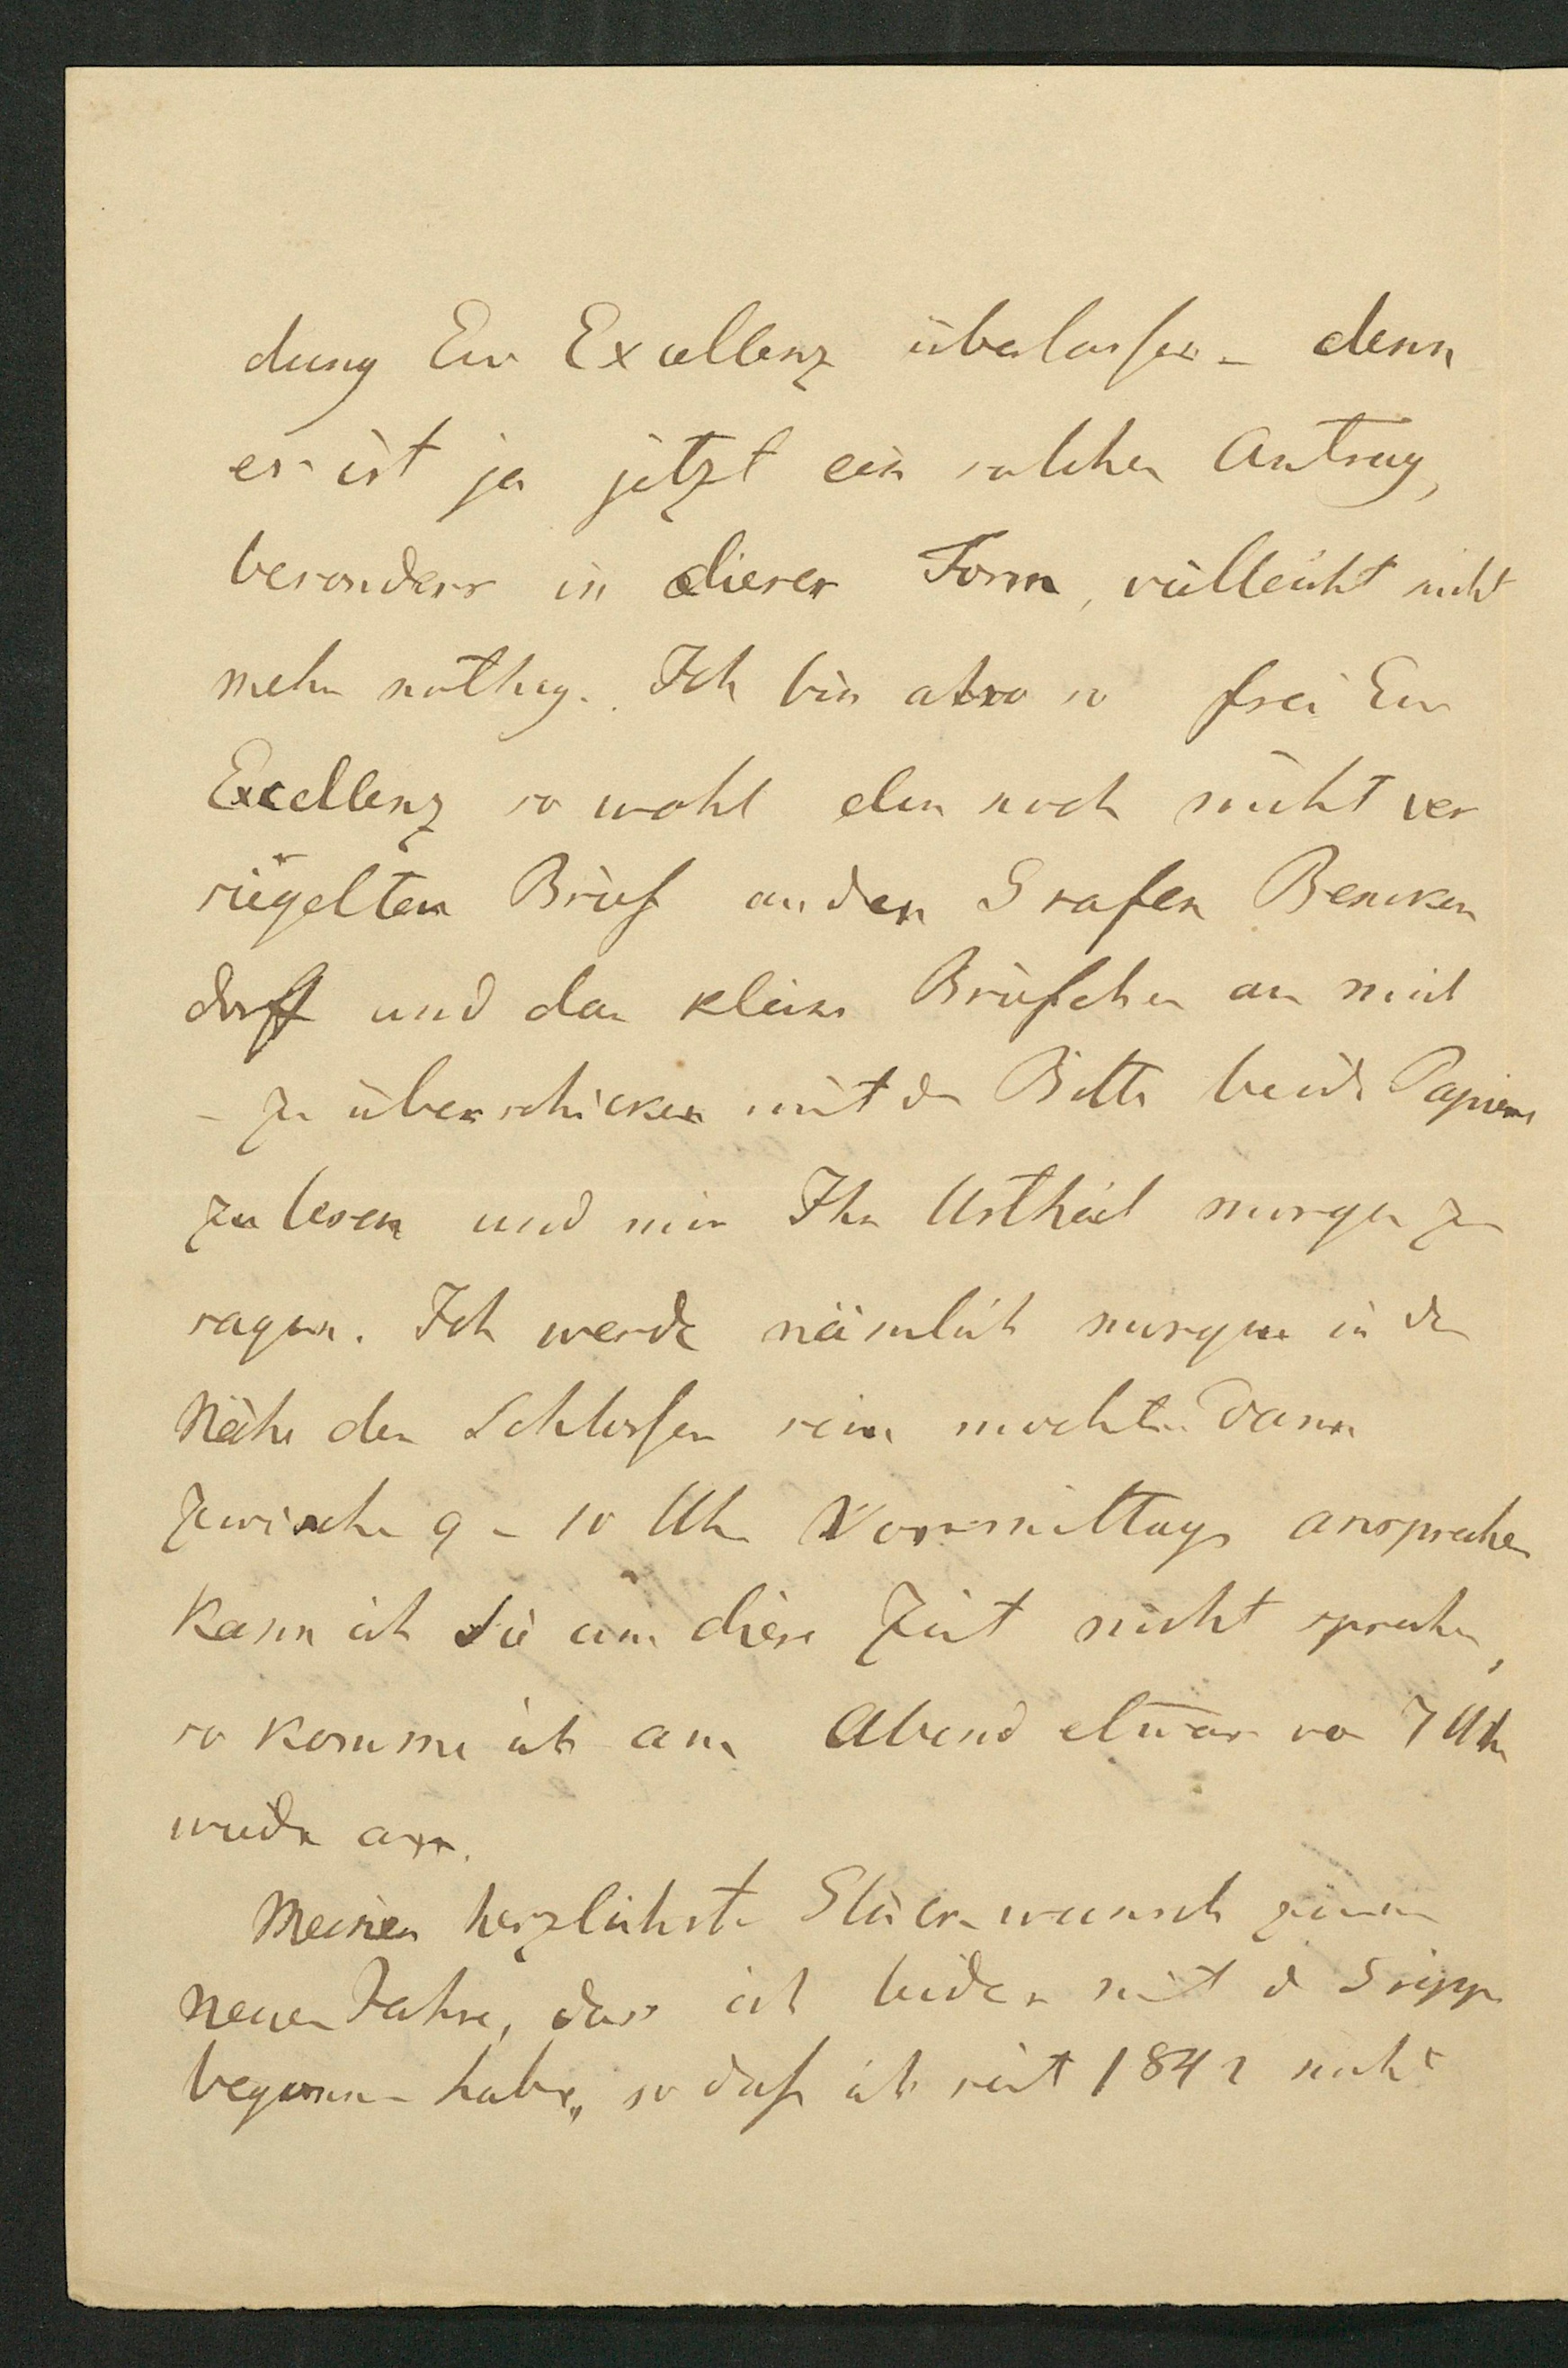 dung Ew Excellenz überlassen – denn
es ist ja jetzt ein solcher Antrag,
besonders in dieser Form, vielleicht nicht
mehr nöthig. Ich bin also so frei Ew
Excellenz so wohl den noch nicht ver
siegelten Brief an den Grafen Bencken
dorff und das kleine Briefchen an mich
– zu überschicken mit der Bitte beide Papiere
zu lesen und mir Ihr Urtheil morgen zu
sagen. Ich werde nämlich morgen in der
Nähe des Schlosses sein mochte dann
zwischen 9 – 10 Uhr Vormittags ansprechen
kann ich Sie um diese Zeit nicht sprechen,
so komme ich am Abend etwas vor 7 Uhr
wieder an.
Meinen herzlichsten Glückwunsch zum
neuen Jahre, das ich leider mit d Grippe
begonnen habe, so daß ich seit 1842 nicht